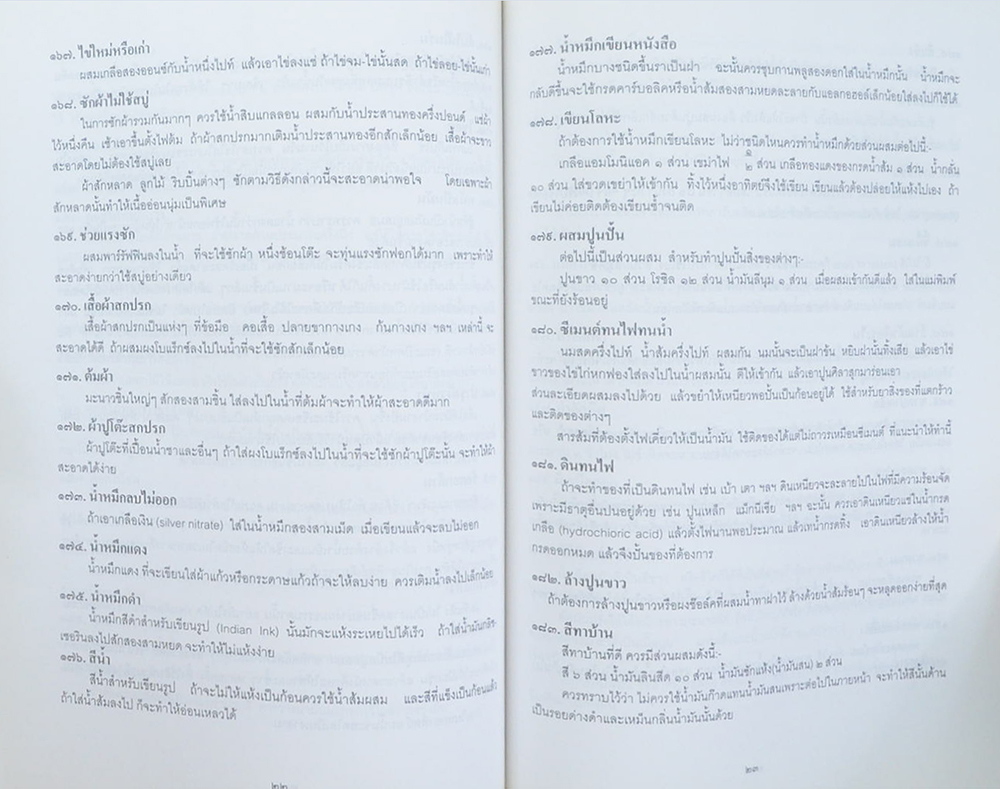 ๑๖๗. ไข่ใหม่หรือเก่า
ผสมเกลือสองออนซ์กับน้ำหนึ่งไปท์ แล้วเอาไข่ลงแช่ ถ้าไข่จม-ไข่นั้นสด ถ้าไข่ลอย-ไข่นั้นเก่า
๑๖๘. ซักผ้าไม่ใช้สบู่
ในการซักผ้ารวมกันมากๆ ควรใช้น้ำสิบแกลลอน ผสมกับน้ำประสานทองครึ่งปอนด์ แช่ผ้า
ไว้หนึ่งคืน เช้าเอาขึ้นตั้งไฟต้ม ถ้าผ้าสกปรกมากเติมน้ำประสานทองอีกสักเล็กน้อย เสื้อผ้าจะขาว
สะอาดโดยไม่ต้องใช้สบู่เลย
ผ้าสักหลาด ลูกไม้ ริบบิ้นต่างๆ ซักตามวิธีดังกล่าวนี้จะสะอาดน่าพอใจ โดยเฉพาะผ้า
สักหลาดนั้นทำให้เนื้ออ่อนนุ่มเป็นพิเศษ
๑๖๙. ช่วยแรงซัก
ผสมพาร์รัฟฟินลงในน้ำ ที่จะใช้ซักผ้า หนึ่งช้อนโต๊ะ จะทุ่นแรงซักฟอกได้มาก เพราะทำให้
สะอาดง่ายกว่าใช้สบู่อย่างเดียว
๑๗๐. เสื้อผ้าสกปรก
เสื้อผ้าสกปรกเป็นแห่งๆ ที่ข้อมือ คอเสื้อ ปลายขากางเกง ก้นกางเกง ฯลฯ เหล่านี้ จะ
สะอาดได้ดี ถ้าผสมผงโบแร็กซ์ลงไปในน้ำที่จะใช้ซักสักเล็กน้อย
๑๗๑. ต้มผ้า
มะนาวชิ้นใหญ่ๆ สักสองสามชิ้น ใส่ลงไปในน้ำที่ต้มผ้าจะทำให้ผ้าสะอาดดีมาก
๑๗๒. ผ้าปูโต๊ะสกปรก
ผ้าปูโต๊ะที่เปื้อนน้ำชาและอื่นๆ ถ้าใส่ผงโบแร็กซ์ลงไปในน้ำที่จะใช้ซักผ้าปูโต๊ะนั้น จะทำให้ผ้า
สะอาดได้ง่าย
๑๗๓. น้ำหมึกลบไม่ออก
ถ้าเอาเกลือเงิน (silver nitrate) ใส่ในน้ำหมึกสองสามเม็ด เมื่อเขียนแล้วจะลบไม่ออก
๑๗๔. น้ำหมึกแดง
น้ำหมึกแดง ที่จะเขียนใส่ผ้าแก้วหรือกระดาษแก้วถ้าจะให้ลบง่าย ควรเติมน้ำลงไปเล็กน้อย
๑๗๕. น้ำหมึกดำ
น้ำหมึกสีดำสำหรับเขียนรูป (Indian Ink) นั้นมักจะแห้งระเหยไปได้เร็ว ถ้าใส่น้ำมันกลีซ-
เซอรินลงไปสักสองสามหยด จะทำให้ไม่แห้งง่าย
๑๗๖. สีน้ำ
สีน้ำสำหรับเขียนรูป ถ้าจะไม่ให้แห้งเป็นก้อนควรใช้น้ำส้มผสม และสีที่แข็งเป็นก้อนแล้ว
ถ้าใส่น้ำส้มลงไป ก็จะทำให้อ่อนเหลวได้
๒๒
๑๗๗. น้ำหมึกเขียนหนังสือ
น้ำหมึกบางชนิดขึ้นราเป็นฝา ฉะนั้นควรชุบกานพลูสองดอกใส่ในน้ำหมึกนั้น น้ำหมึกจะ
กลับดีขึ้นจะใช้กรดคาร์บอลิคหรือน้ำส้มสองสามหยดละลายกับแอลกอฮอล์เล็กน้อยใส่ลงไปก็ใช้ได้
๑๗๘. เขียนโลหะ
ถ้าต้องการใช้น้ำหมึกเขียนโลหะ ไม่ว่าชนิดไหนควรทำน้ำหมึกด้วยส่วนผสมต่อไปนี้:-
เกลือแอมโมนีแอค ๑ ส่วน เขม่าไฟ ๑/๒ ส่วน เกลือทองแดงของกรดน้ำส้ม ๑ ส่วน น้ำกลั่น
๑๐ ส่วน ใส่ขวดเขย่าให้เข้ากัน ทิ้งไว้หนึ่งอาทิตย์จึงใช้เขียน เขียนแล้วต้องปล่อยให้แห้งไปเอง ถ้า
เขียนไม่ค่อยติดต้องเขียนซ้ำจนติด
๑๗๙. ผสมปูนปั้น
ต่อไปนี้เป็นส่วนผสม สำหรับทำปูนปั้นสิ่งของต่างๆ:-
ปูนขาว ๑๐ ส่วน โรซิล ๑๒ ส่วน น้ำมันลีนุม ๑ ส่วน เมื่อผสมเข้ากันดีแล้ว ใส่ในแม่พิมพ์
ขณะที่ยังร้อนอยู่
๑๘๐. ซีเมนต์ทนไฟทนน้ำ
นมสดครึ่งไปท์ น้ำส้มครึ่งไปท์ ผสมกัน นมนั้นจะเป็นฝาข้น หยิบฝานั้นทิ้งเสีย แล้วเอาไข่
ขาวของไข่ไก่หกฟองใส่ลงไปในน้ำผสมนั้น ตีให้เข้ากัน แล้วเอาปูนศิลาสุกมาร่อนเอา
ส่วนละเอียดผสมลงไปด้วย แล้วขยำให้เหนียวพอปั้นเป็นก้อนอยู่ได้ ใช้สำหรับยาสิ่งของที่แตกร้าว
และติดของต่างๆ
สารส้มที่ต้องตั้งไฟเคี่ยวให้เป็นน้ำมัน ใช้ติดของได้แต่ไม่ถาวรเหมือนซีเมนต์ ที่แนะนำให้ทำนี้
๑๘๑. ดินทนไฟ
ถ้าจะทำของที่เป็นดินทนไฟ เช่น เบ้า เตา ฯลฯ ดินเหนียวจะละลายไปในไฟที่มีความร้อนจัด
เพราะมีธาตุอื่นปนอยู่ด้วย เช่น ปูนเหล็ก แม็กนีเซีย ฯลฯ ฉะนั้น ควรเอาดินเหนียวแช่ในน้ำกรด
เกลือ (hydrochloric acid) แล้วตั้งไฟนานพอประมาณ แล้วเทน้ำกรดทิ้ง เอาดินเหนียวล้างให้น้ำ
กรดออกหมด แล้วจึงปั้นของที่ต้องการ
๑๘๒. ล้างปูนขาว
ถ้าต้องการล้างปูนขาวหรือผงช๊อล์คที่ผสมน้ำทาฝาไว้ ล้างด้วยน้ำส้มร้อนๆ จะหลุดออกง่ายที่สุด
๑๘๓. สีทาบ้าน
สีทาบ้านที่ดี ควรมีส่วนผสมดังนี้:-
สี ๖ ส่วน น้ำมันลินสีด ๑๐ ส่วน น้ำมันชักแห้ง(น้ำมันสน) ๒ ส่วน
ควรทราบไว้ว่า ไม่ควรใช้น้ำมันก๊าดแทนน้ำมันสนเพราะต่อไปในภายหน้า จะทำให้สีนั้นด้าน
เป็นรอยด่างดำและเหม็นกลิ่นน้ำมันนั้นด้วย
๒๓